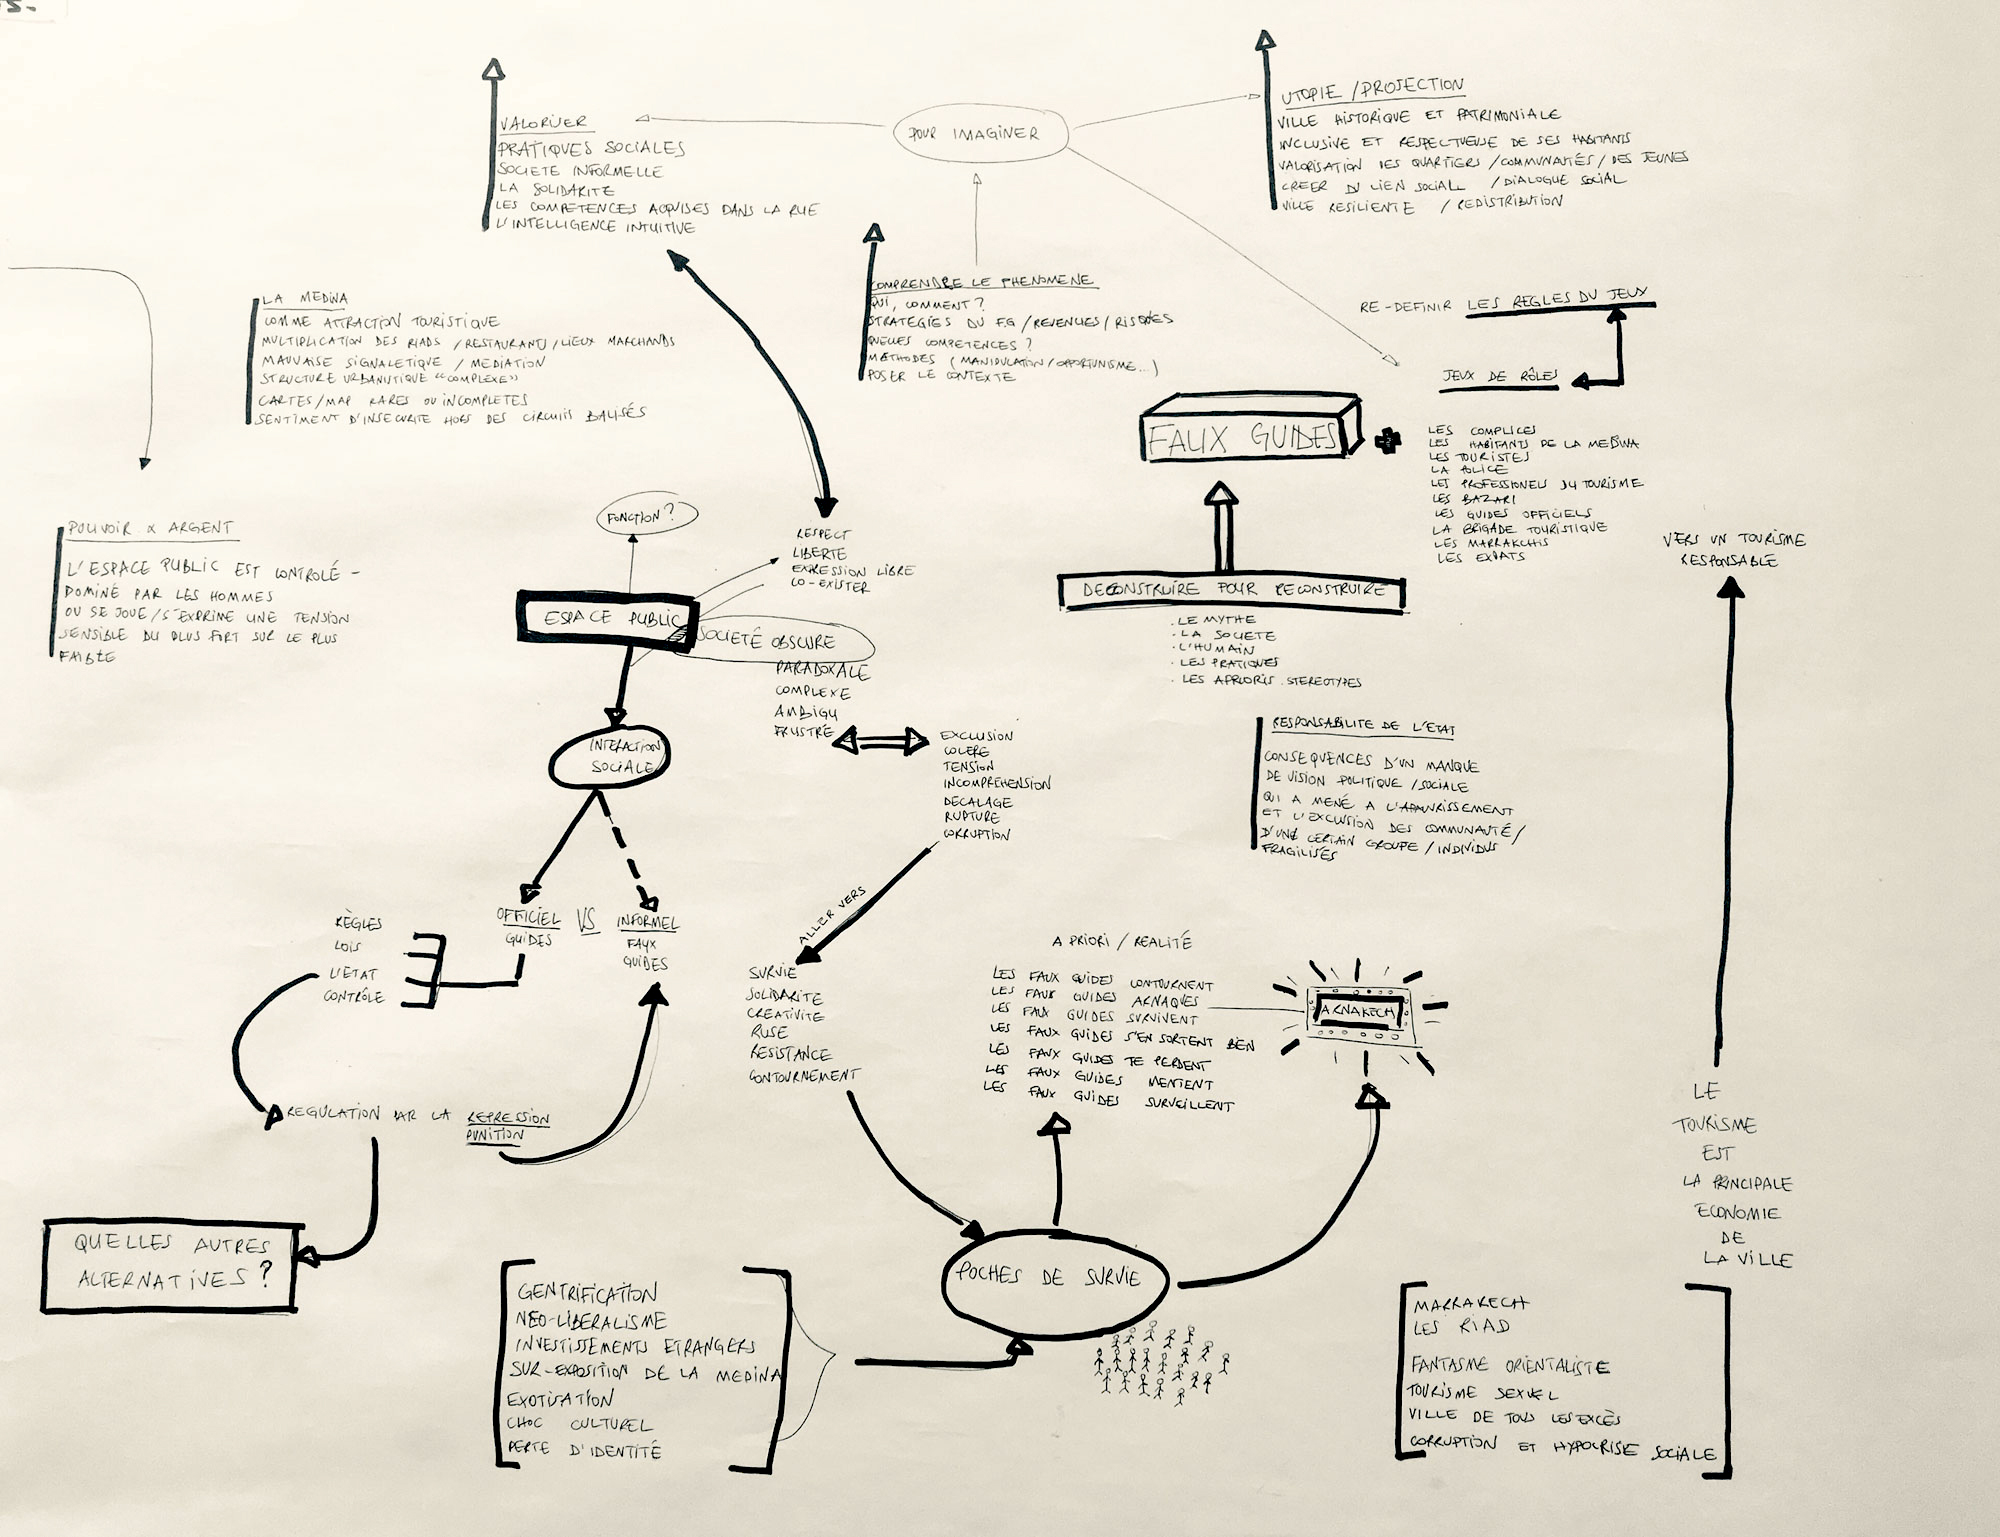 VALORISER
PRATIQUES SOCIALES
SOCIETE INFORMELLE
LA SOLIDARITE
LES COMPETENCES ACQUISES DANS LA RUE
L'INTELLIGENCE INTUITIVE
POUR IMAGINER
UTOPIE / PROJECTION
VILLE HISTORIQUE ET PATRIMONIALE
INCLUSIVE ET RESPECTUEUSE DE SES HABITANTS
VALORISATION DES QUARTIERS / COMMUNAUTÉS / DES JEUNES
CREER DU LIEN SOCIAL / DIALOGUE SOCIAL
VILLE RESILIENTE / REDISTRIBUTION
LA MEDINA
COMME ATTRACTION TOURISTIQUE
MULTIPLICATION DES RIADS / RESTAURANTS / LIEUX MARCHANDS
MAUVAISE SIGNALETIQUE / MEDIATION
STRUCTURE URBANISTIQUE "COMPLEXE"
CARTES/MAP RARES OU INCOMPLETES
SENTIMENT D'INSECURITE HORS DES CIRCUITS BALISÉS
COMPRENDRE LE PHENOMENE
QUI, COMMENT ?
STRATEGIES DU F.G / REVENUES / RISQUES
QUELLES COMPETENCES ?
METHODES (MANIPULATION/OPPORTUNISME...)
POSER LE CONTEXTE
RE-DEFINIR LES REGLES DU JEUX
JEUX DE RÔLES
FAUX GUIDES
LES COMPLICES
LES HABITANTS DE LA MEDINA
LES TOURISTES
LA POLICE
LES PROFESSIONELS DU TOURISME
LES BAZARI
LES GUIDES OFFICIELS
LA BRIGADE TOURISTIQUE
LES MARRAKCHIS
LES EXPATS
POUVOIR & ARGENT
L'ESPACE PUBLIC EST CONTROLÉ -
DOMINÉ PAR LES HOMMES
OU SE JOUE/S'EXPRIME UNE TENSION
SENSIBLE DU PLUS FORT SUR LE PLUS
FAIBLE
FONCTION ?
RESPECT
LIBERTE
EXPRESSION LIBRE
CO-EXISTER
ESPACE PUBLIC
SOCIETÉ OBSCURE
PARADOXALE
COMPLEXE
AMBIGU
FRUSTRÉ
DECONSTRUIRE POUR RECONSTRUIRE
. LE MYTHE
. LA SOCIETE
. L'HUMAIN
. LES PRATIQUES
. LES APRIORIS . STEREOTYPES
VERS UN TOURISME
RESPONSABLE
INTERACTION
SOCIALE
EXCLUSION
COLERE
TENSION
INCOMPRÉHENSION
DECALAGE
RUPTURE
CORRUPTION
RESPONSABILITE DE L'ETAT
CONSEQUENCES D'UN MANQUE
DE VISION POLITIQUE / SOCIALE
QUI A MENÉ A L'APAUVRISSEMENT
ET L'EXCLUSION DES COMMUNAUTÉ/
D'UNE CERTAIN GROUPE / INDIVIDUS
FRAGILISÉS
OFFICIEL VS INFORMEL
GUIDES
FAUX
GUIDES
RÈGLES
LOIS
L'ÉTAT
CONTRÔLE
ALLER VERS
SURVIE
SOLIDARITE
CREATIVITE
RUSE
RESISTANCE
CONTOURNEMENT
A PRIORI / REALITÉ
LES FAUX GUIDES CONTOURNENT
LES FAUX GUIDES ARNAQUES
LES FAUX GUIDES SURVIVENT
LES FAUX GUIDES S'EN SORTENT BIEN
LES FAUX GUIDES TE PERDENT
LES FAUX GUIDES MENTENT
LES FAUX GUIDES SURVEILLENT
ARNAKECH
REGULATION PAR LA REPRESSION
PUNITION
LE
TOURISME
EST
LA PRINCIPALE
ECONOMIE
DE
LA VILLE
QUELLES AUTRES
ALTERNATIVES ?
POCHES DE SURVIE
GENTRIFICATION
NEO-LIBERALISME
INVESTISSEMENTS ETRANGERS
SUR-EXPOSITION DE LA MEDINA
EXOTISATION
CHOC CULTUREL
PERTE D'IDENTITÉ
MARRAKECH
LES RIAD
FANTASME ORIENTALISTE
TOURISME SEXUEL
VILLE DE TOUS LES EXCÈS
CORRUPTION ET HYPOCRISIE SOCIALE